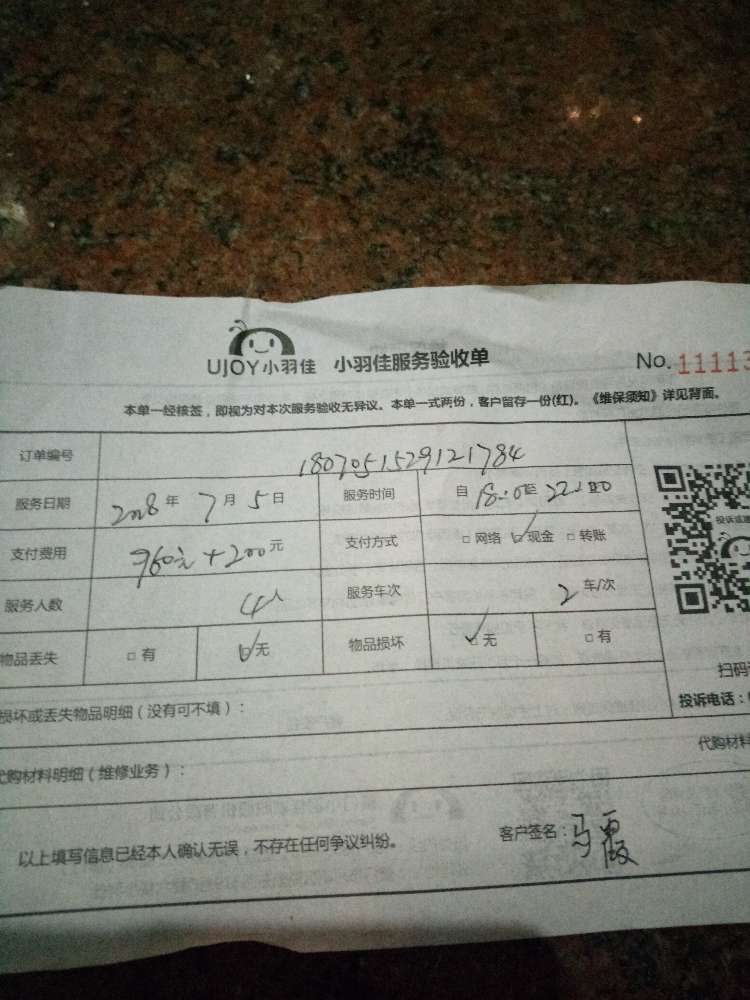 UJOY小羽佳 小羽佳服务验收单 No. 11113
本单一经核签，即视为对本次服务验收无异议。本单一式两份，客户留存一份(红)。《维保须知》详见背面。
订单编号 1807051529121784
服务日期 2018年7月5日 服务时间 自18:0至22:00
支付费用 960元+200元 支付方式 □网络 ☑现金 □转账
服务人数 4人 服务车次 2车/次
物品丢失 □有 ☑无 物品损坏 ☑无 □有
投诉或
扫码
损坏或丢失物品明细（没有可不填）： 投诉电话：
代购材料明细（维修业务）： 代购材料
以上填写信息已经本人确认无误，不存在任何争议纠纷。 客户签名：马霞